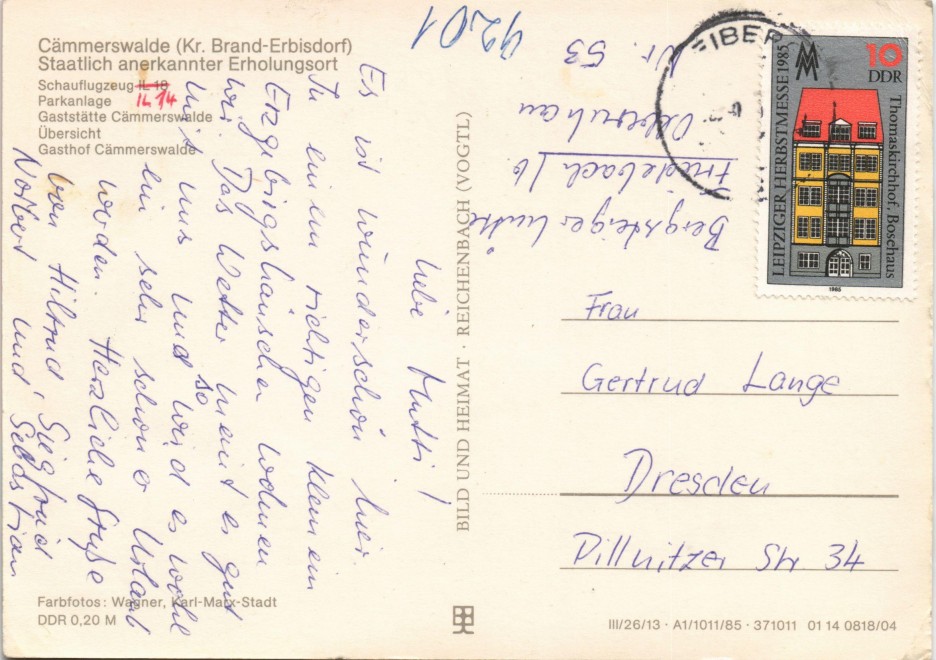 Cämmerswalde (Kr. Brand-Erbisdorf)
Staatlich anerkannter Erholungsort
Schauflugzeug IL 18
IL 14
Parkanlage
Gaststätte Cämmerswalde
Übersicht
Gasthof Cämmerswalde
Liebe Mutti!
Es ist wunderschön hier.
In einem richtigen kleinen
Erzgebirgshäuschen wohnen
wir. Das Wetter meint es gut
mit uns und so wird es wohl
ein sehr schöner Urlaub
werden. Herzliche Grüße
von Hiltrud, Siegfried
Norbert und Sebastian
Farbfotos: Wagner, Karl-Marx-Stadt
DDR 0,20 M
BILD UND HEIMAT · REICHENBACH (VOGTL)
Bergsteigerhütte
Friedebach 16
Olbernhau
Nr. 53
9201
EIBER
10
DDR
LEIPZIGER HERBSTMESSE 1985
Thomaskirchhof, Bosehaus
1985
Frau
Gertrud Lange
Dresden
Pillnitzer Str 34
III/26/13 · A1/1011/85 · 371011 01 14 0818/04